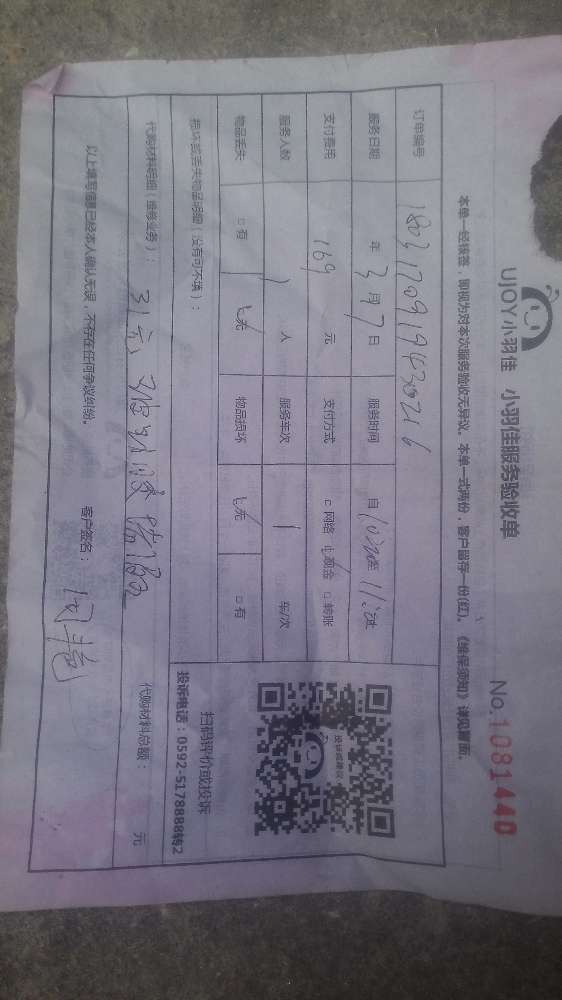 UJOY小羽佳 小羽佳服务验收单
No.1081440
本单一经签名，即视为对本次服务验收无异议。本单一式两份，客户留存一份(红)。《维保须知》详见背面。
订单编号
服务日期 年 3 月 7 日 服务时间 自 10:30至 11:
支付费用 169 元 支付方式 □网络 □现金 □转账
服务人数 1 人 服务车次 1 车/次
物品丢失 □有 □无 物品损坏 □无 □有
损坏或丢失物品明细（没有可不填）：
扫码评价或投诉
投诉电话：0592-5178888转2
代购材料明细（维修业务）： 代购材料总额： 元
以上填写信息已经本人确认无误，不存在任何争议纠纷。 客户签名：